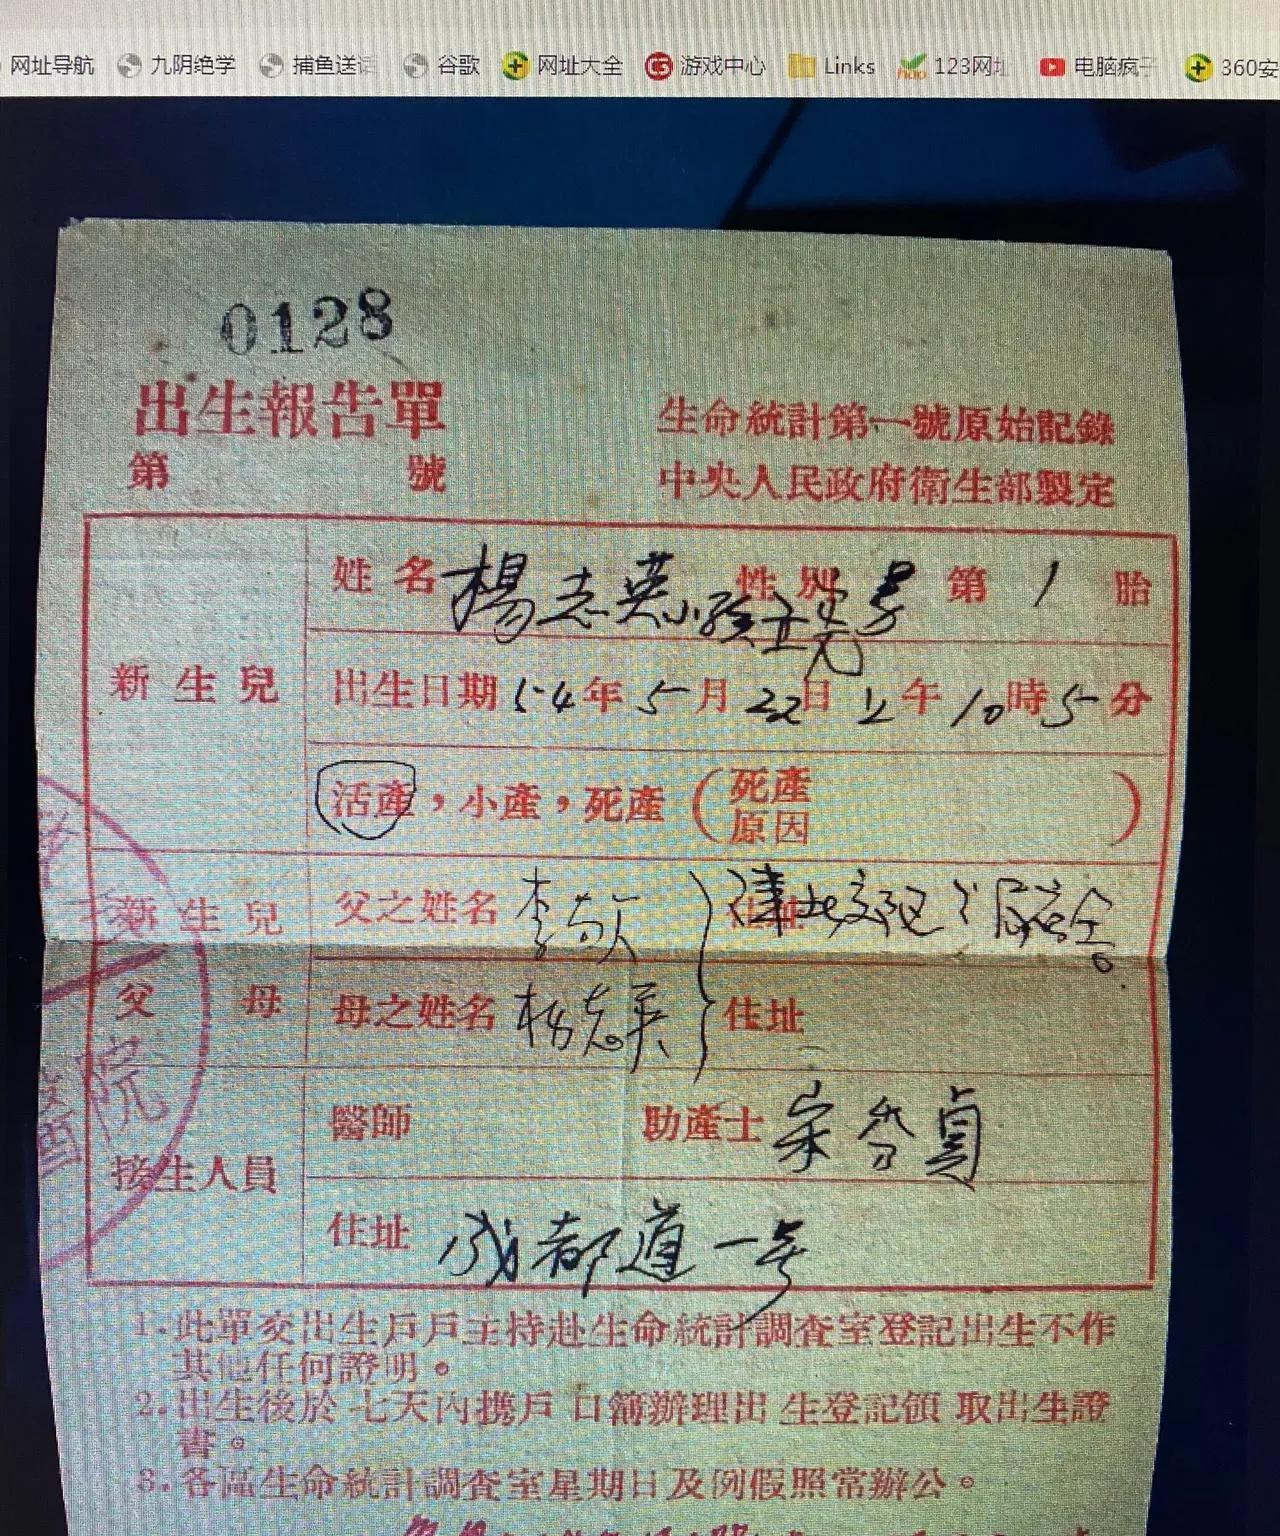 网址导航 九阴绝学 捕鱼送话 谷歌 网址大全 游戏中心 Links 123网址 电脑疯子 360安
0128
出生報告單
第 號
生命統計第一號原始記錄
中央人民政府衛生部製定
新生兒
姓名 楊志英小孩 性別 男 第 1 胎
出生日期 54年 5月 22日 上午 10時 5分
活產，小產，死產（死產原因 ）
新生兒父母
父之姓名 李
母之姓名 杨志英 住址
接生人員
醫師 助產士 宋秀貞
住址 成都道一号
1. 此單交出生戶戶主持赴生命統計調查室登記出生不作
其他任何證明。
2. 出生後於七天內携戶口簿辦理出生登記領取出生證
書。
3. 各區生命統計調查室星期日及例假照常辦公。
院